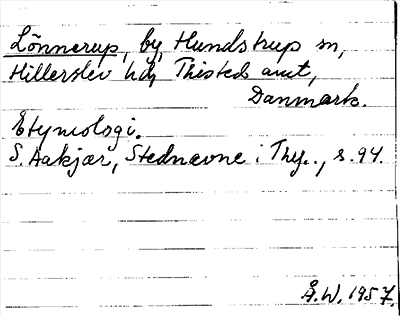 Lönnerup, by, Hundstrup sn,
Hillerslev hd, Thisteds amt,
Danmark.
Etymologi.
S. Aakjær, Stednavne i Thy.., s. 94.
Å.W. 1957.